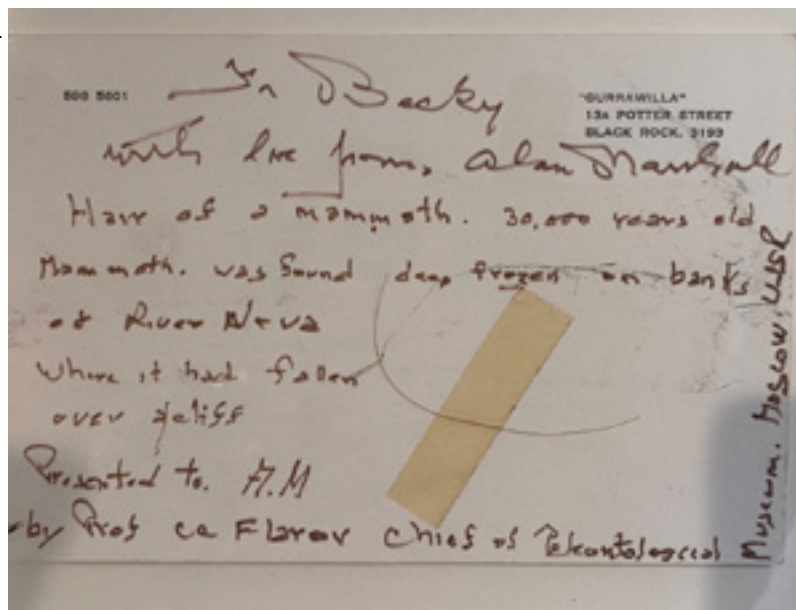 598 5801
"GURRAWILLA"
13A POTTER STREET
BLACK ROCK. 3193
To Becky
with love from, Alan Marshall
Hair of a mammoth. 30,000 years old
Mammoth. was found deep frozen on banks
of River Neva
where it had fallen
over a cliff
Presented to. A.M
by Prof Flerov Chief of Paleontological
Museum. Moscow. USSR